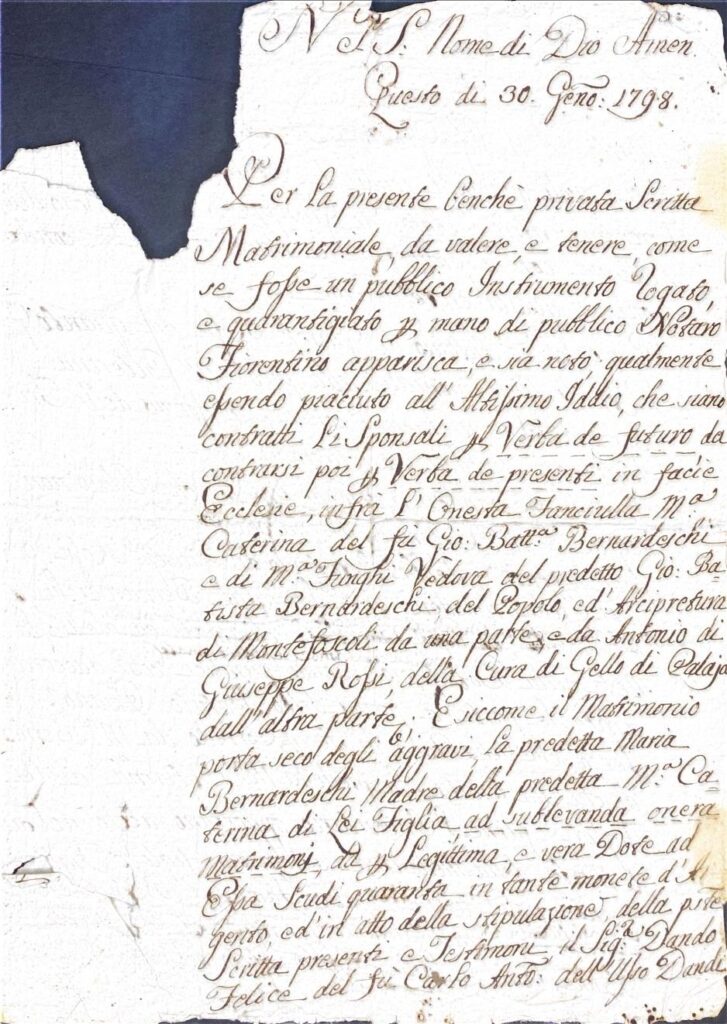 N Il S: Nome di Dio Amen.
Questo di 30. Genō: 1798.
Per la presente benchè privata Scritta
Matrimoniale, da valere, e tenere, come
se fosse un pubblico Instrumento Rogato,
e quarantigiato p mano di pubblico Notaro
Fiorentino apparisca, e sia noto, qualmente
essendo piaciuto all' Altissimo Iddio, che siano
contratti li Sponsali p Verba de futuro da
contrarsi poi p Verba de presenti in facie
Ecclesie, infra l' Onesta Fanciulla M.ª
Caterina del fù Gio: Batt.ª Bernardeschi
e di M.ª Funghi Vedova del predetto Gio: Ba=
tista Bernardeschi, del Popolo, ed' Arcipretura
di Montefoscoli da una parte, e da Antonio di
Giuseppe Rossi, della Cura di Gello di Palaja
dall' altra parte. E siccome il Matrimonio
porta seco degli aggravi, la predetta Maria
Bernardeschi Madre della predetta M.ª Ca=
terina di Lei Figlia ad sublevanda onera
Matrimonj, dà p Legittima, e vera Dote ad
Essa Scudi quaranta in tante monete d' Ar
gento, ed' in atto della stipulazione della pñte
Scritta presenti e Testimoni il Sig.r Dando
Felice del fù Carlo Antō: dell' Usso Dandi